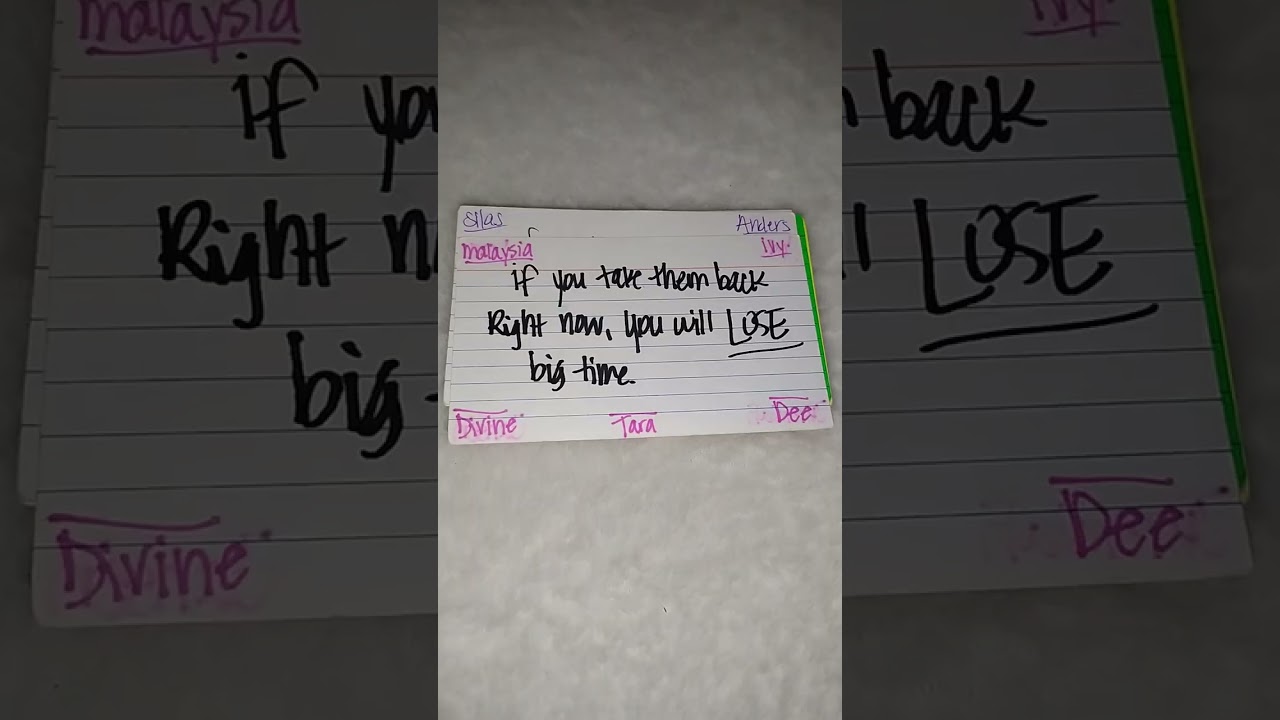 Silas Anders
malaysia ivy.
if you take them back
Right now, you will LOSE
big time.
Divine Tara Dee